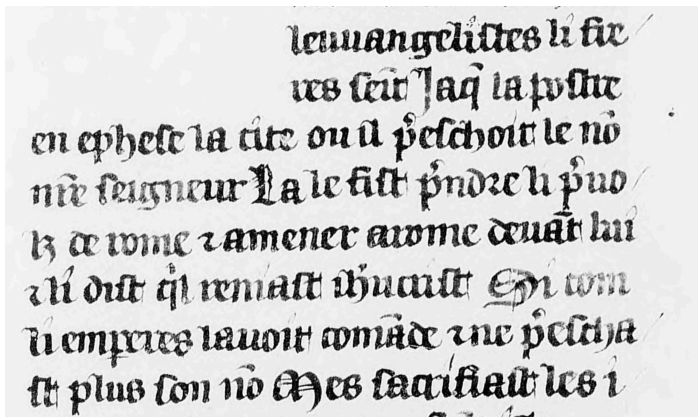 leuuangelistes li fre
res seīt Jaq̄ la postre
en ephese la cite ou il p̄eschoit le nō
nr̄e seigneur La le fist p̄ndre li p̄uo
lz de rome ⁊ amener arome deuāt lui
⁊ li dist ql̄ reniast ih̄ucrist Si com
li emperes lauoit comāde ⁊ ne p̄escha
st plus son nō Mes sacrifiast les i